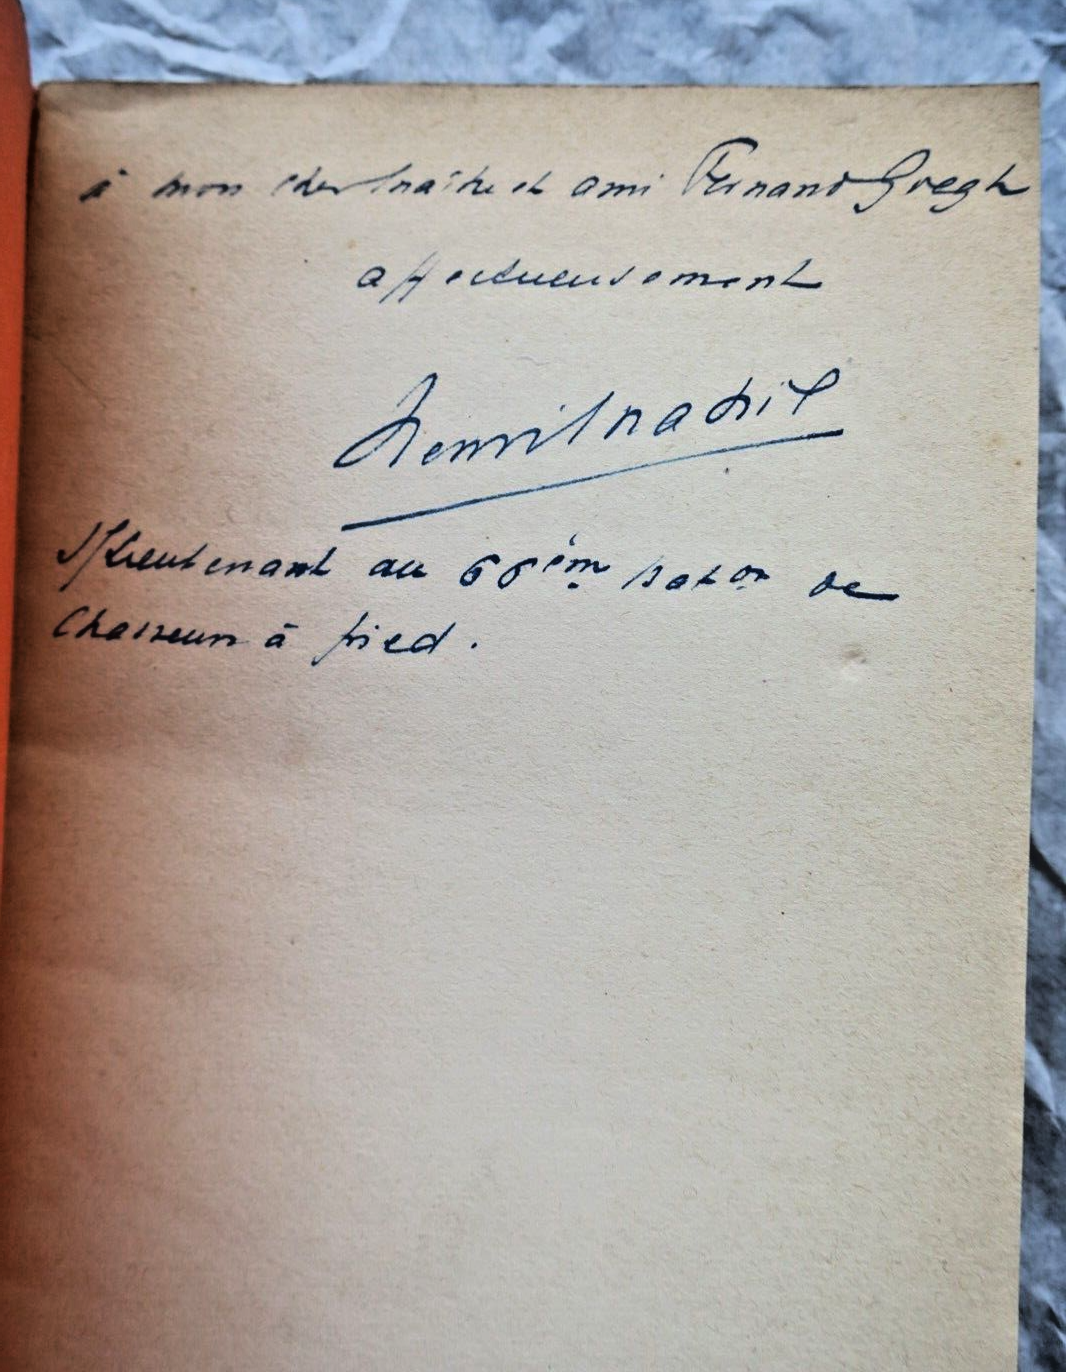 à mon cher maître et ami Fernand Gregh
affectueusement
Henri
S/Lieutenant au 66èm Baton de
Chasseurs à pied.